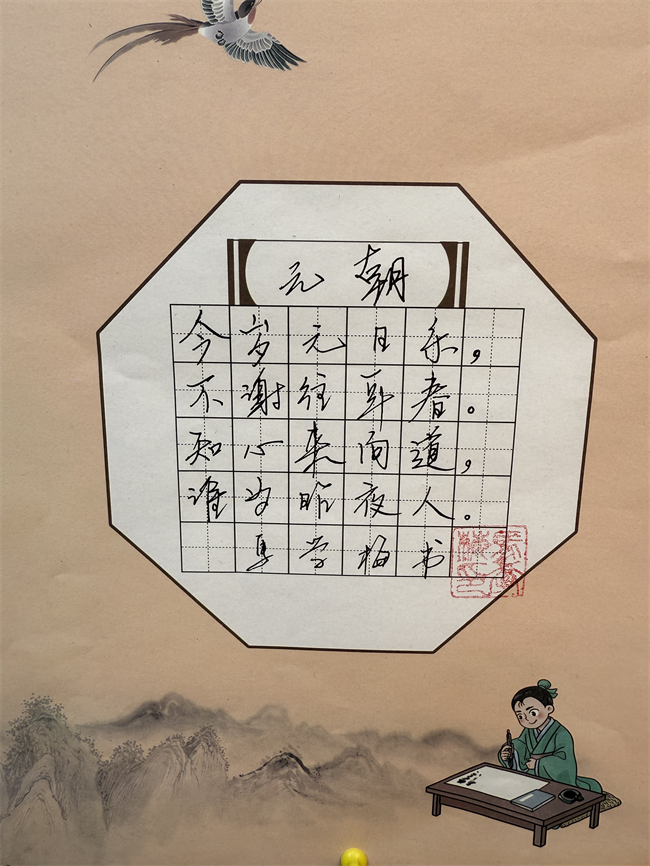 元朝
今岁元日乐，
不谢往年春。
知心来向道，
谁为昨夜人。
学梅书